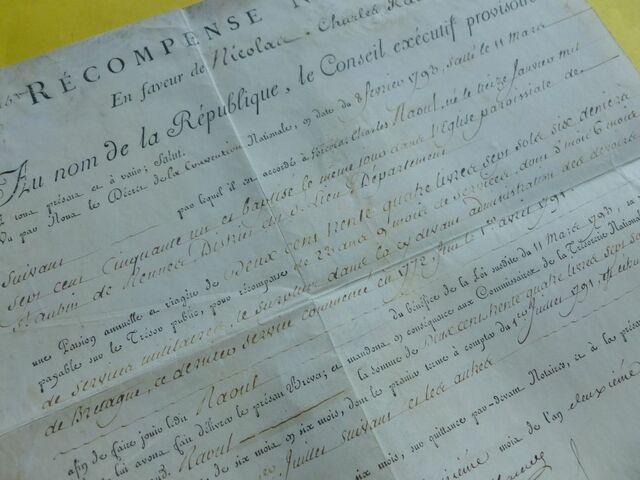 RÉCOMPENSE N
En faveur de Nicolas-Charles Ra
Au nom de la République, le Conseil exécutif provisoire
A tous présens et à venir; Salut.
Vu par Nous le Décret de la Convention Nationale, en date du 8 février 1793, sanc le 11 Mars
Suivant par lequel il est accordé à Nicolas Charles Raoul, né le treize Janvier mil
Sept cent Cinquante un et baptisé le même jour dans l'Eglise paroissiale de
St aubin de Rennes District du d. lieu Département
une Pension annuelle et viagère de Deux cent trente quatre livres sept sols six deniers
payable sur le Trésor public, pour récompense de 22 ans 9 mois de services, dont 3 mois 6 mois
de service militaire, le surplus dans la ci devant administration des devoirs
de Bretagne, ce dernier service commencé en 1772, fini le 1er avril 1791.
afin de faire jouir ledit Raoul du bénéfice de la Loi susdite du 11 Mars 1793,
lui avons fait délivrer le présent Brevet; et mandons, en conséquence aux Commissaires de la Trésorerie Nationale
Raoul la somme de Deux cent trente quatre livres sept sols
de six mois en six mois, dont le premier terme à compter du 1er Juillet 1791,
Juillet suivant et les autres
six mois, sur quittance par-devant Notaires, et à la présen
mois de l'an deuxième